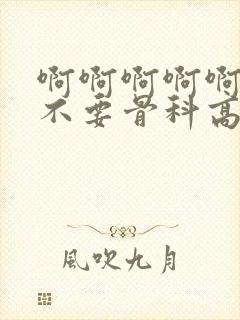 啊啊啊啊啊
不要骨科高
風吹九月